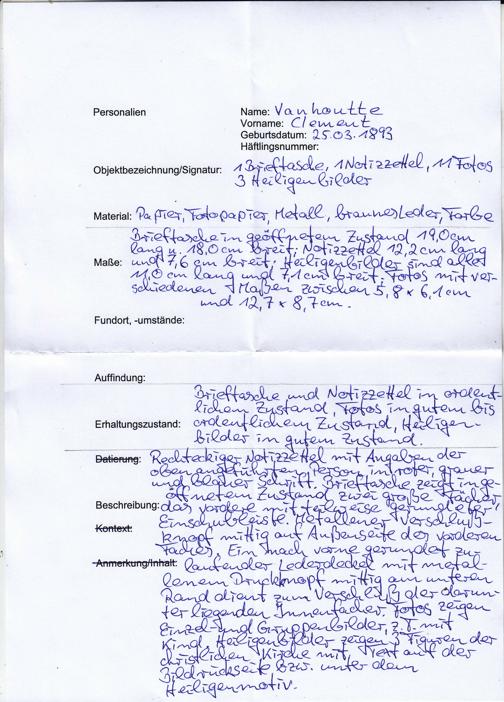 Personalien
Name: Vanhoutte
Vorname: Clement
Geburtsdatum: 25.03.1893
Häftlingsnummer:
Objektbezeichnung/Signatur: 1 Brieftasche, 1 Notizzettel, 11 Fotos
3 Heiligenbilder
Material: Papier, Fotopapier, Metall, braunes Leder, Farbe
Brieftasche in geöffnetem Zustand 19,0cm
lang u. 18,0cm breit; Notizzettel 12,2cm lang
Maße: und 7,6 cm breit; Heiligenbilder sind alle
11,0 cm lang und 7,1cm breit; Fotos mit ver-
schiedenen Maßen zwischen 5,8 x 6,1 cm
und 12,7 x 8,7cm.
Fundort, -umstände:
Auffindung:
Brieftasche und Notizzettel in ordent-
lichem Zustand, Fotos in gutem bis
Erhaltungszustand: ordentlichem Zustand, Heiligen-
bilder in gutem Zustand.
Datierung: Rechteckiger Notizzettel mit Angaben der
oben angeführten Person in roter, grauer
und blauer Schrift. Brieftasche zeigt in ge-
öffnetem Zustand zwei große Fächer,
Beschreibung: das vordere mit teilweise gerundeter
Kontext: Einschubleiste. Metallener Verschluß-
knopf mittig auf Außenseite des vorderen
Faches. Ein nach vorne gerundet zu-
Anmerkung/Inhalt: laufender Lederdeckel mit metal-
lenem Druckknopf mittig am unteren
Rand dient zum Verschluß der darun-
ter liegenden Innenfächer. Fotos zeigen
Einzel- und Gruppenbilder, z.T. mit
Kind. Heiligenbilder zeigen 3 Figuren der
christlichen Kirche mit Text auf der
Bildrückseite bzw. unter dem
Heiligenmotiv.